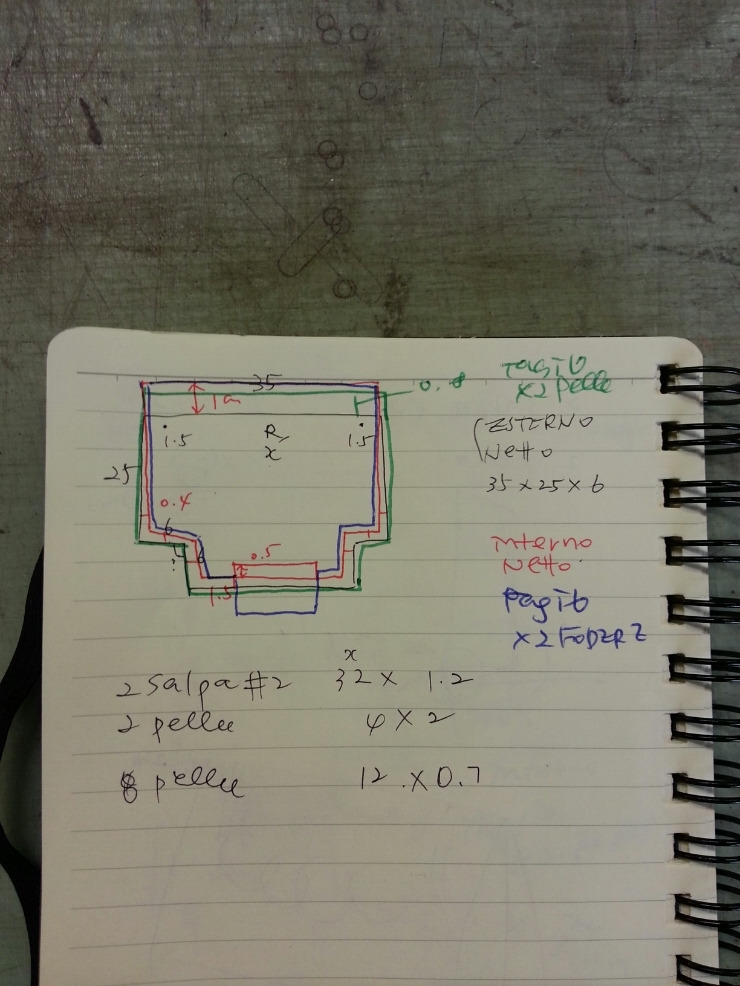 35
TagiG
0.8
x2 pelle
1cm
ESTERNO
1.5
R,
1.5
x
Netto
25
35 x 25 x 6
0.4
6
interno
0.5
Netto
1.5
x2 FODERE
x
2 Salpa #2 32 x 1.2
2 pelle 4 x 2
8 pelle 12 . x 0.7